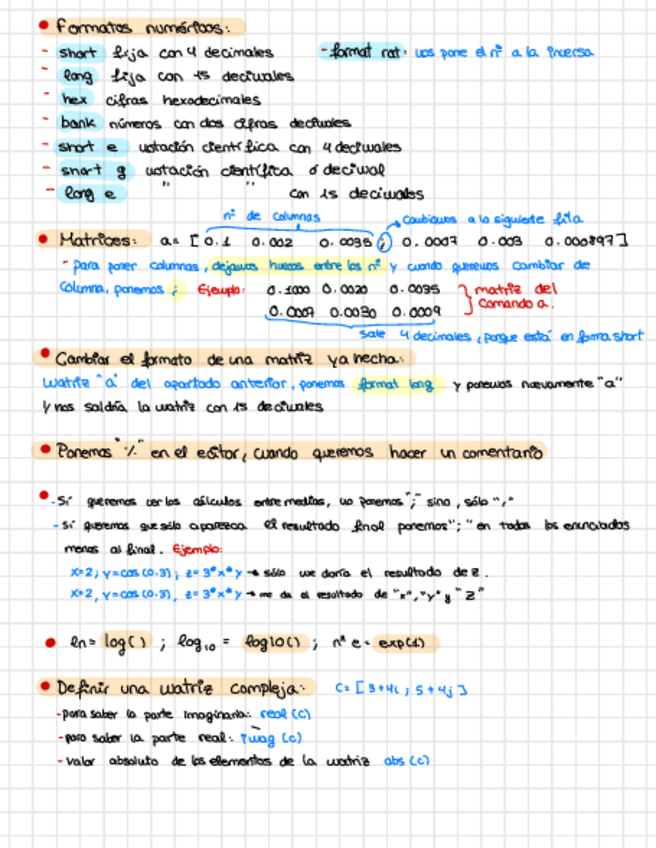 • Formatos numéricos:
- short fija con 4 decimales - format rat: nos pone el nº a la inversa
- long fija con 15 decimales
- hex cifras hexadecimales
- bank números con dos cifras decimales
- short e notación científica con 4 decimales
- short g notación científica ó decimal
- long e " " con 15 decimales
nº de columnas cambiamos a la siguiente fila
• Matrices: a= [0.1 0.002 0.0035 ; 0.0007 0.003 0.000897]
- para poner columnas, dejamos huecos entre los nº y cuando queremos cambiar de
columna, ponemos ; Ejemplo: 0.1000 0.0020 0.0035 matriz del
0.0007 0.0030 0.0009 comando a.
sale 4 decimales, porque está en forma short
• Cambiar el formato de una matriz ya hecha:
matriz "a" del apartado anterior, ponemos format long y ponemos nuevamente "a"
y nos saldría la matriz con 15 decimales
• Ponemos "%" en el editor, cuando queremos hacer un comentario
• - Si queremos ver los cálculos entre medias, no ponemos ";" sino, sólo ","
- si queremos que sólo aparezca el resultado final ponemos ";" en todos los enunciados
menos al final. Ejemplo:
x=2; y=cos(0.3); z=3*x*y → sólo me daría el resultado de z.
x=2, y=cos(0.3), z=3*x*y → me da el resultado de "x", "y" y "z"
• ln= log() ; log10 = log10() ; nº e = exp(1)
• Definir una matriz compleja: C= [3+4i ; 5+4j]
- para saber la parte imaginaria: real (c)
- para saber la parte real: imag (c)
- valor absoluto de los elementos de la matriz abs (c)